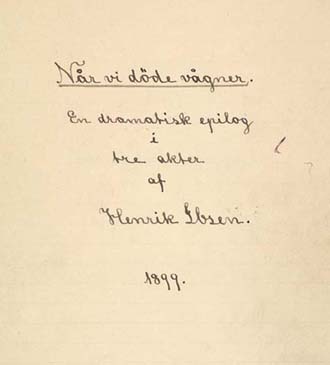 Når vi döde vågner.
En dramatisk epilog
i
tre akter
af
Henrik Ibsen.
1899.